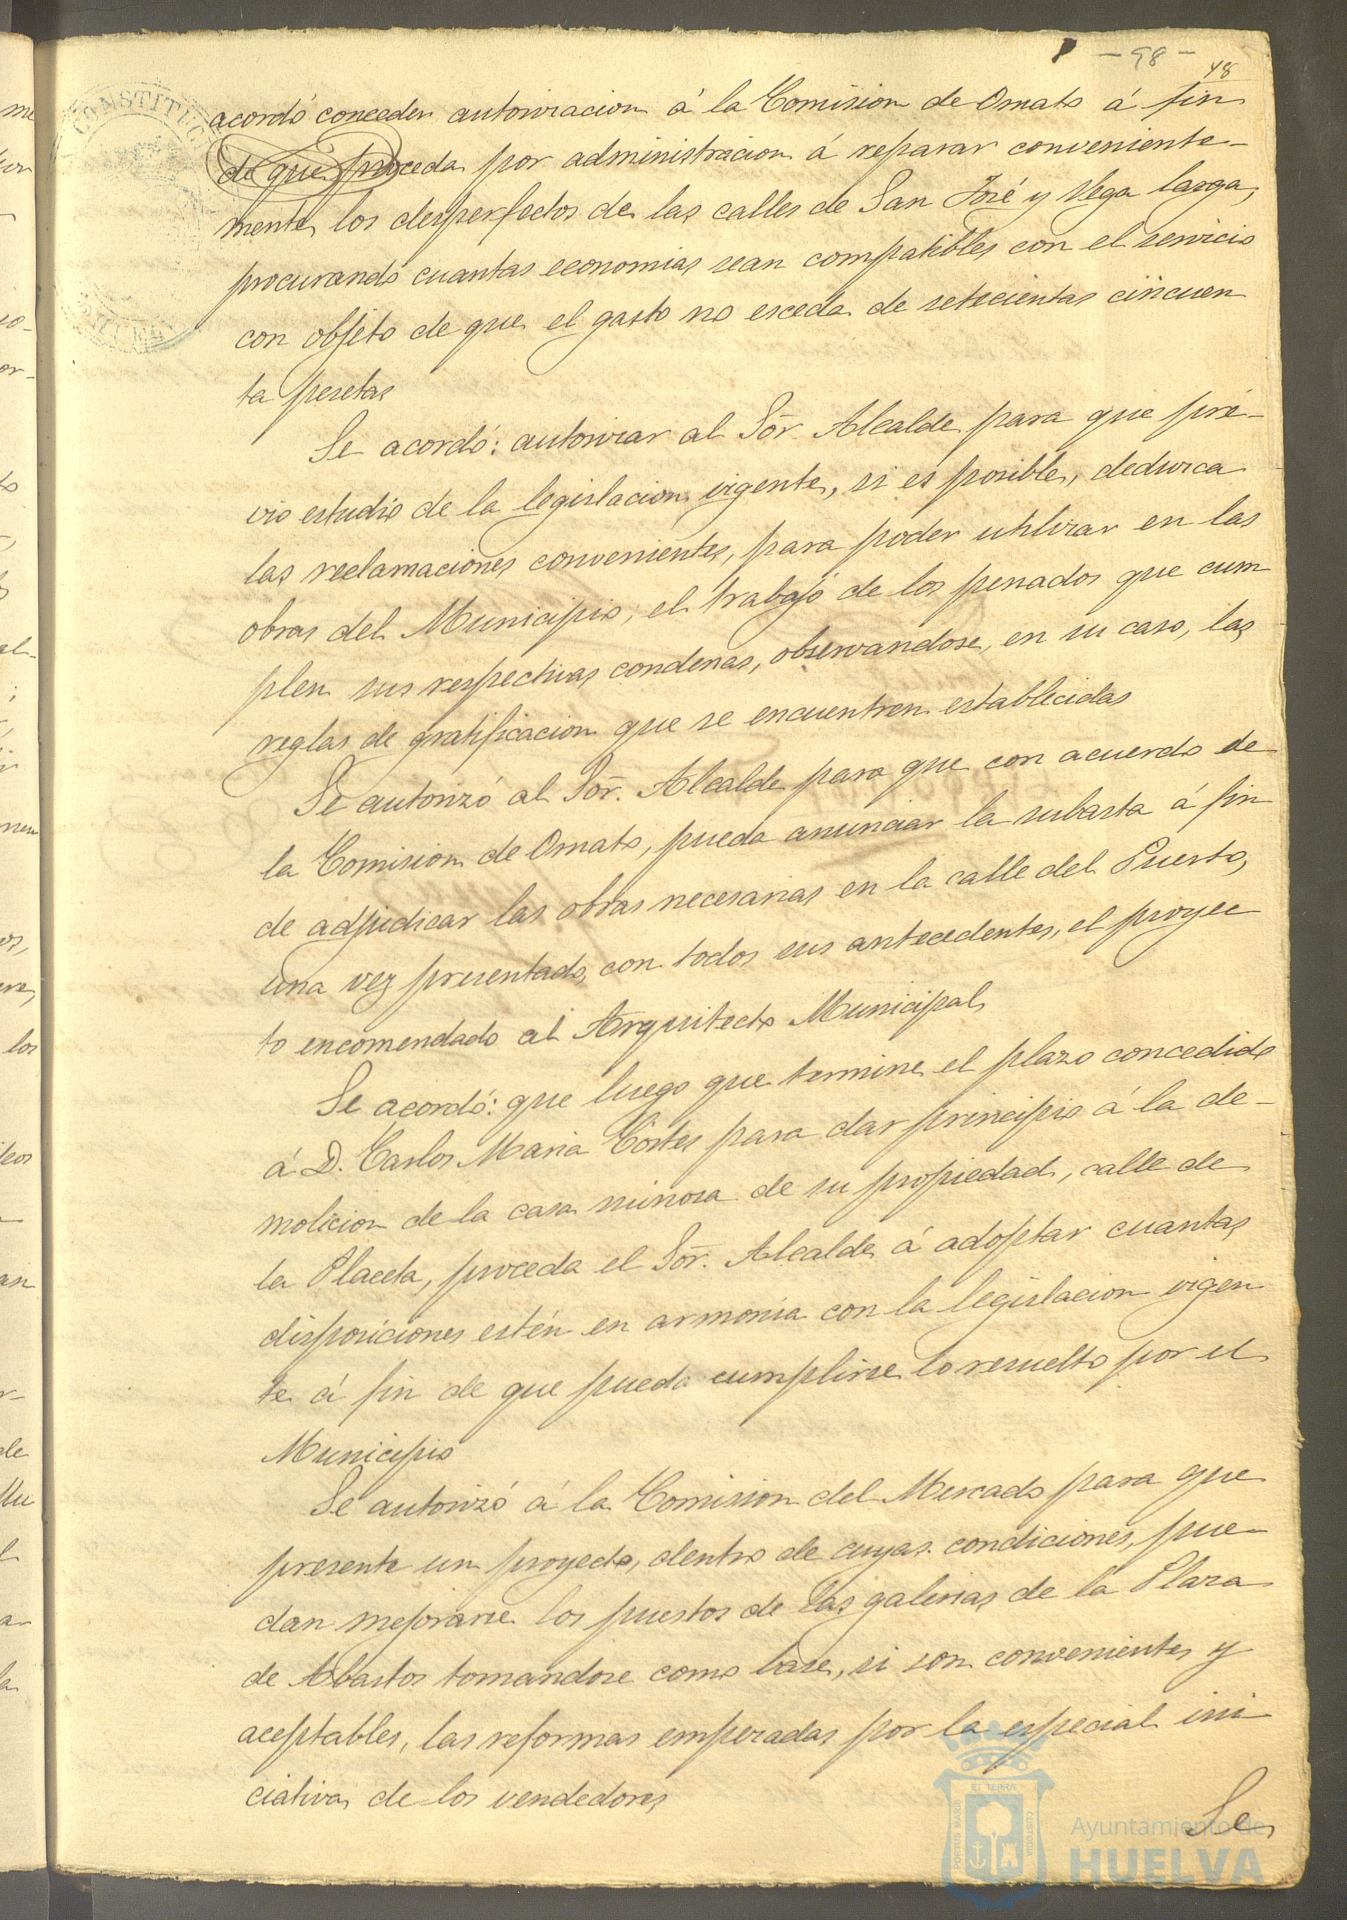 - 98 -
48
acordó conceder autorizacion á la Comision de Ornato á fin
de que proceda por administracion á reparar conveniente-
mente los desperfectos de las calles de San José y Vega larga,
procurando cuantas economias sean compatibles con el servicio
con objeto de que el gasto no esceda de setecientas cincuen
ta pesetas
Se acordó: autorizar al Sōr. Alcalde para que pré-
vio estudio de la legislacion vigente, si es posible, deduzca
las reclamaciones convenientes, para poder utilizar en las
obras del Municipio, el trabajo de los penados que cum
plen sus respectivas condenas, observandose, en su caso, las
reglas de gratificacion que se encuentren establecidas
Se autorizó al Sōr. Alcalde para que con acuerdo de
la Comision de Ornato, pueda anunciar la subasta á fin
de adjudicar las obras necesarias en la calle del Puerto,
una vez presentado, con todos sus antecedentes, el proyec
to encomendado al Arquitecto Municipal
Se acordó: que luego que termine el plazo concedido
á D. Carlos Maria Cortes para dar principio á la de-
molicion de la casa ruinosa de su propiedad, calle de
la Placeta, proceda el Sōr. Alcalde á adoptar cuantas
disposiciones estén en armonía con la legislacion vigen
te á fin de que pueda cumplirse lo resuelto por el
Municipio
Se autorizó á la Comision del Mercado para que
presente un proyecto, dentro de cuyas condiciones, pue-
dan mejorarse los puestos de las galerias de la Plaza
de Abastos tomandose como base, si son convenientes y
aceptables, las reformas empezadas por la especial ini
ciativa de los vendedores
Se
CONSTITUC
PORTUS MARIS
ET TERRÆ
CUSTODIA
Ayuntamiento de
HUELVA